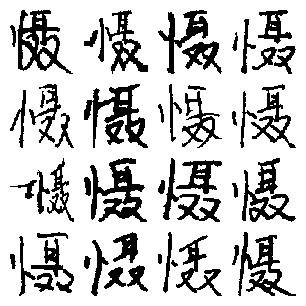 慑慑慑慑
慑慑慑慑
慑慑慑慑
慑慑慑慑